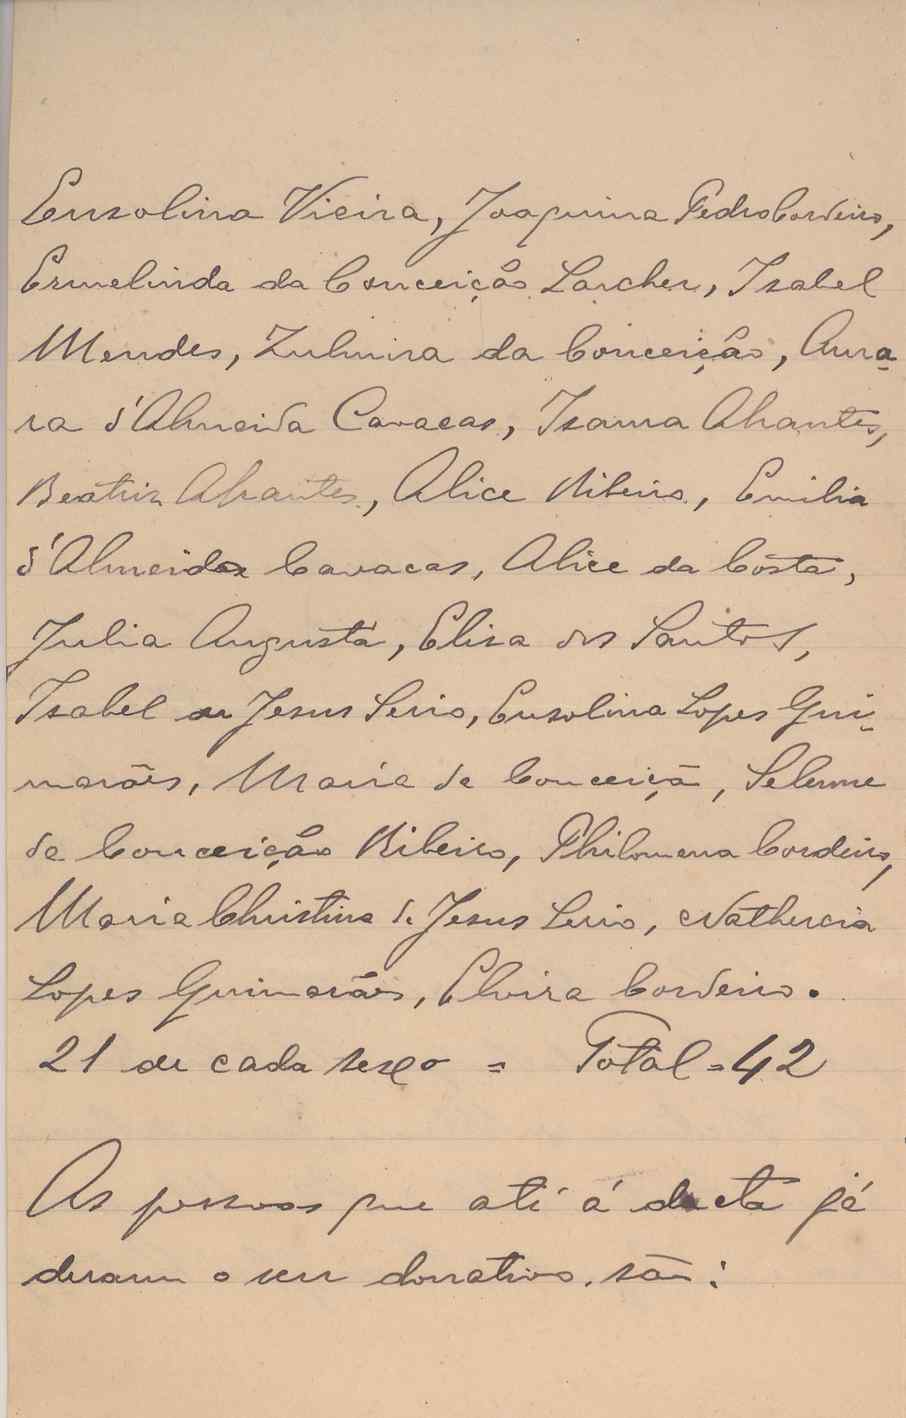 Ensolina Vieira, Joaquina Pedro Cordeiro,
Ermelinda da Conceição Larcher, Isabel
Mendes, Zulmira da Conceição, Auro-
ra d'Almeida Cavacas, Isaura Abrantes,
Beatriz Abrantes, Alice Ribeiro, Emilia
d'Almeida Cavacas, Alice da Costa,
Julia Augusta, Elisa dos Santos,
Isabel de Jesus Serio, Ensolina Lopes Gui-
marães, Maria da Conceiçã,
da Conceição Ribeiro, Philomena Cordeiro,
Maria Christina de Jesus Serio, Nathercia
Lopes Guimarães, Elvira Cordeiro.
21 de cada sexo = Total = 42
As pessoas que até á dacta já
deram o seu donativo, são: